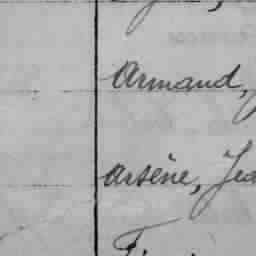 Armand,
Arsène, Jea